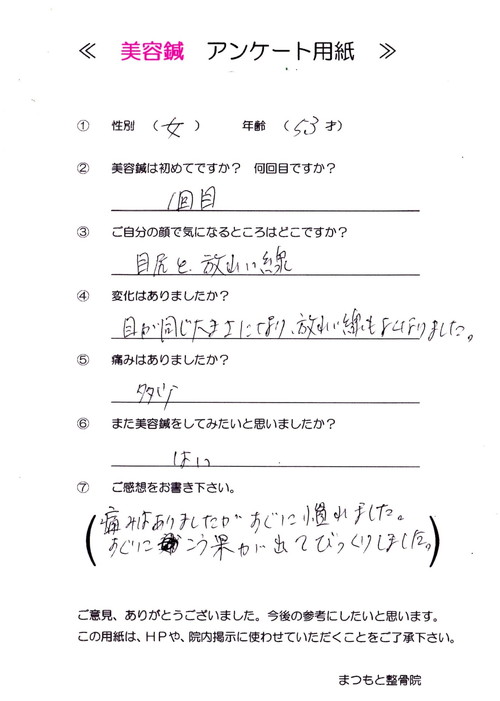 ≪ 美容鍼 アンケート用紙 ≫
① 性別 (女) 年齢 (53才)
② 美容鍼は初めてですか? 何回目ですか?
1回目
③ ご自分の顔で気になるところはどこですか?
目尻と、放れい線
④ 変化はありましたか?
目が同じ大きさになり、放れい線もよくなりました。
⑤ 痛みはありましたか?
多少
⑥ また美容鍼をしてみたいと思いましたか?
はい
⑦ ご感想をお書き下さい。
(痛みはありましたがすぐに慣れました。
すぐにこう果が出てびっくりしました。)
ご意見、ありがとうございました。今後の参考にしたいと思います。
この用紙は、HPや、院内掲示に使わせていただくことをご了承下さい。
まつもと整骨院